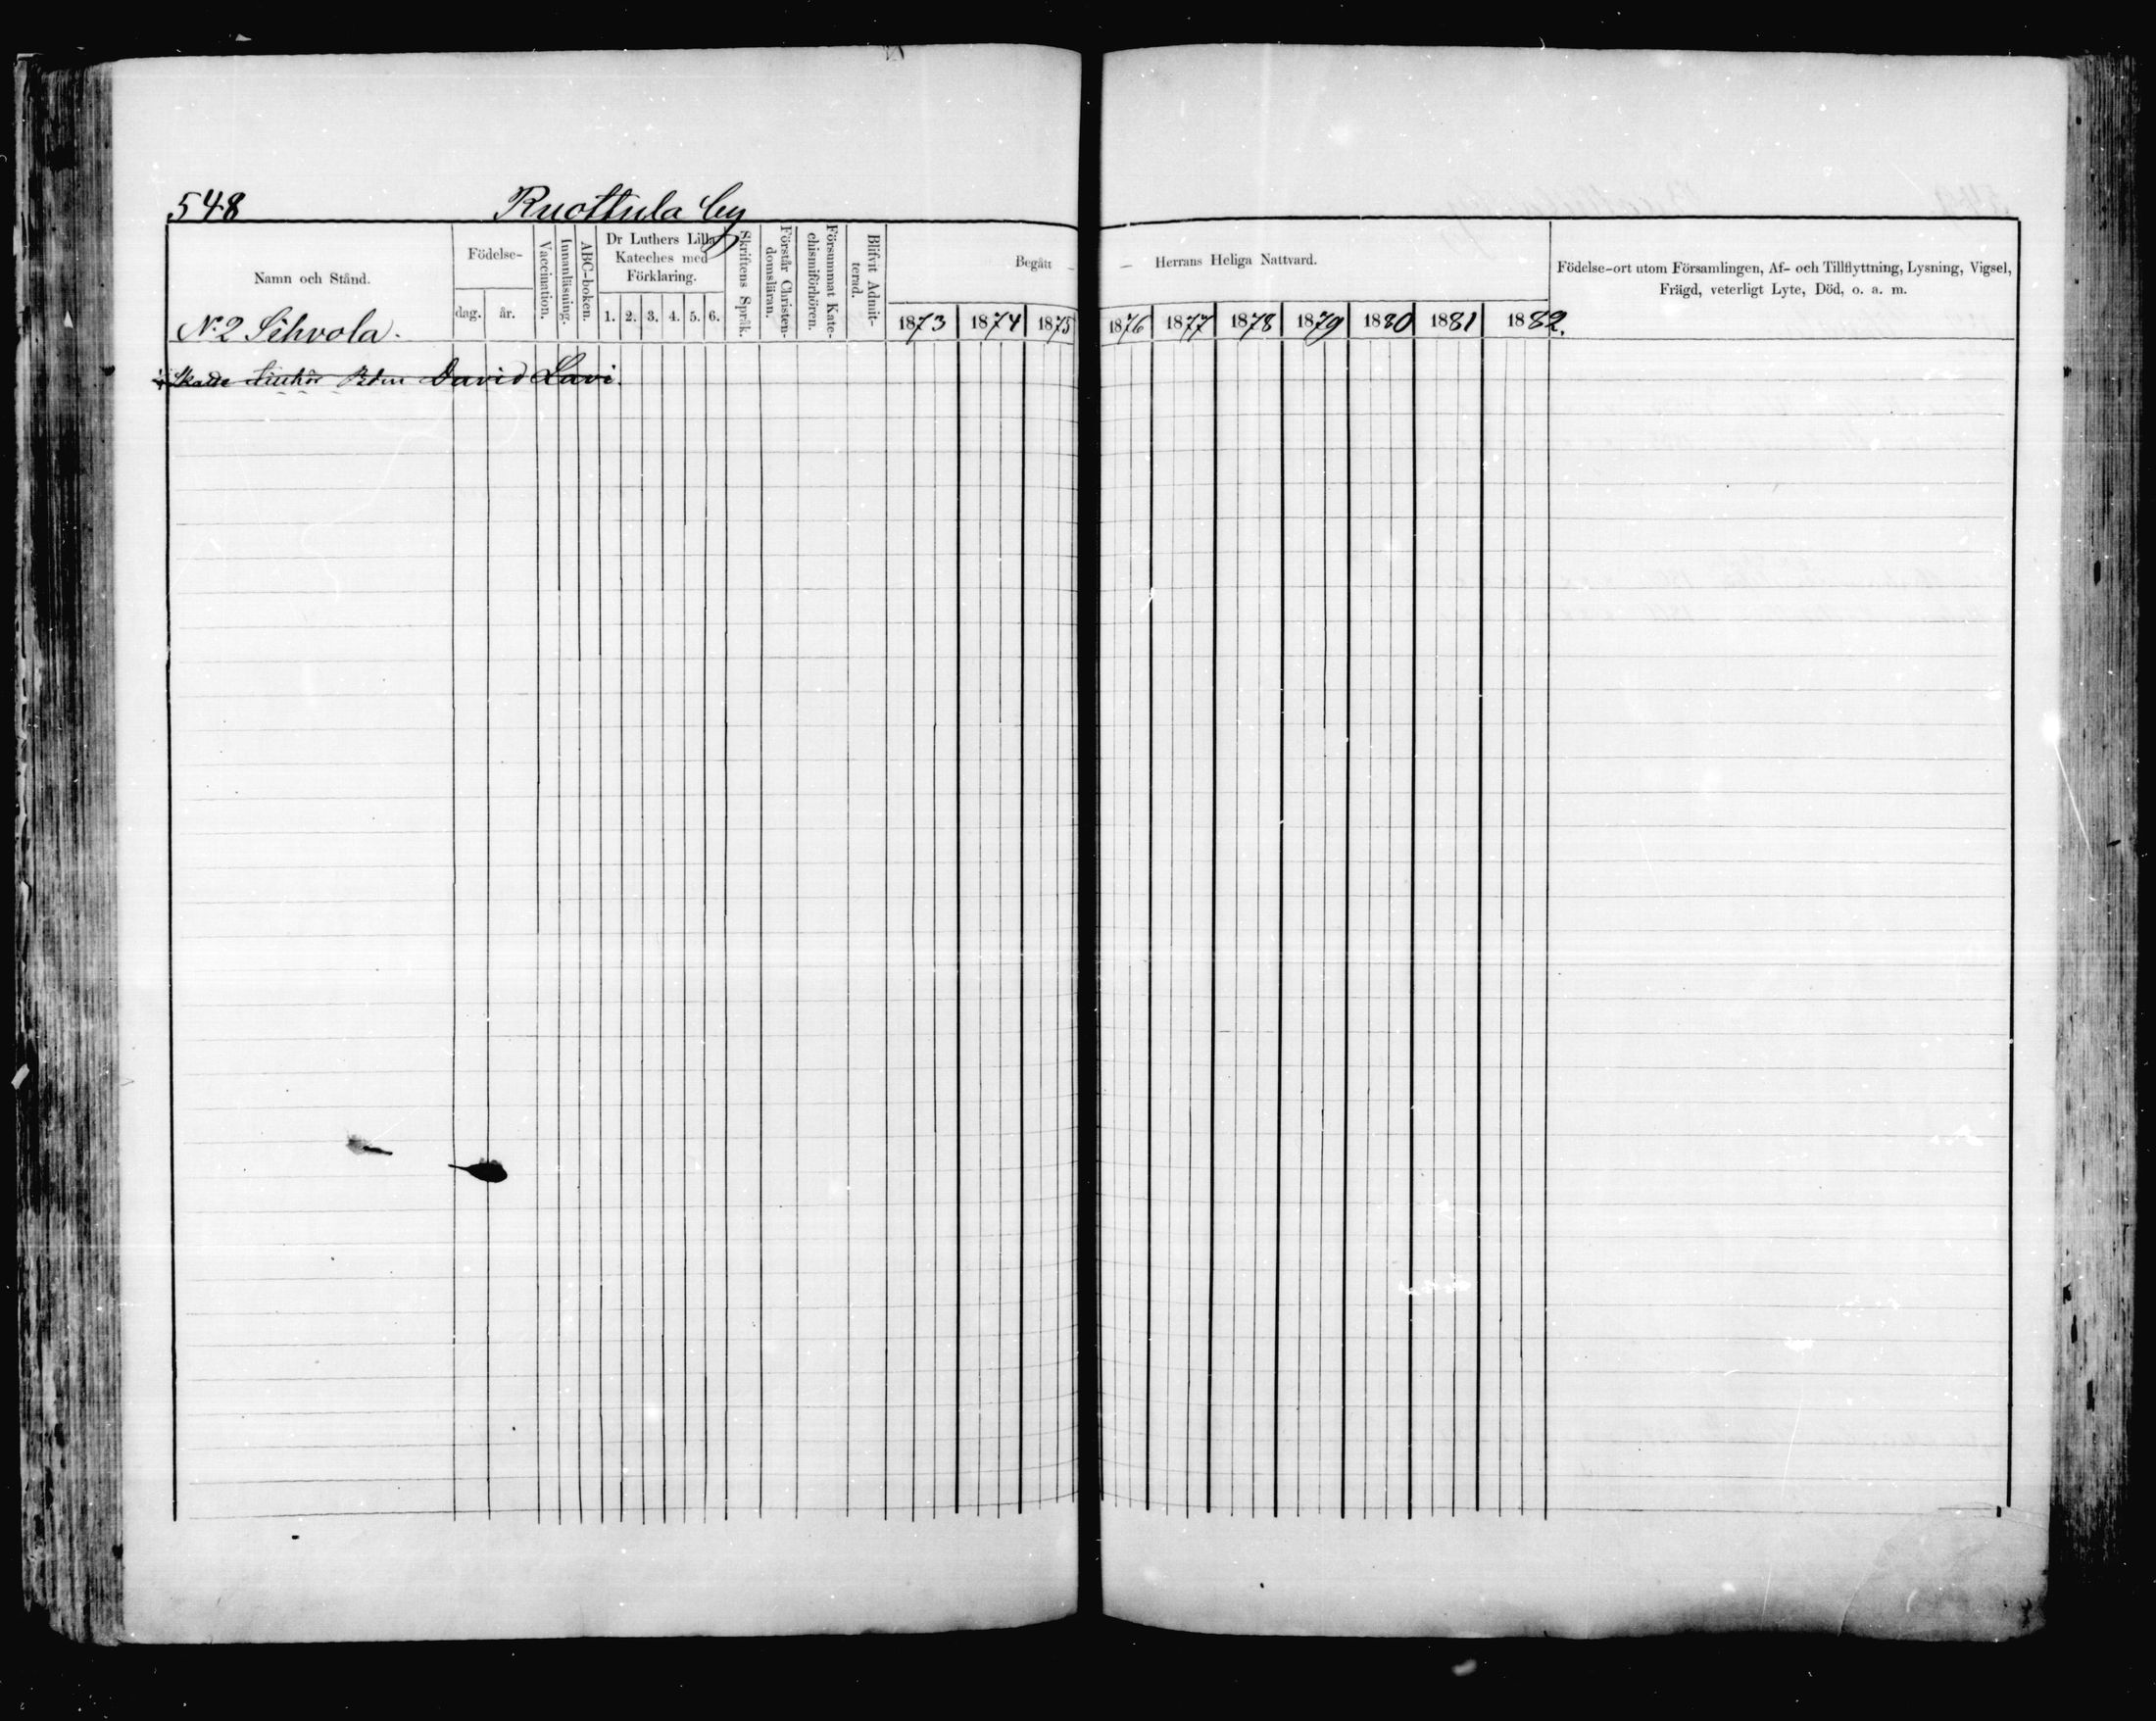 548 Ruottula by
Namn och Stånd.
Födelse-
dag. år.
Vaccination.
Innanläsning.
ABC-boken.
Dr Luthers Lilla
Kateches med
Förklaring.
1. 2. 3. 4. 5. 6.
Skriftens Språk.
Förstår Christen-
domsläran.
Försummat Kate-
chismiförhören.
Blifvit Admit-
terad.
Begått — — Herrans Heliga Nattvard.
1873 1874 1875 1876 1877 1878 1879 1880 1881 1882.
Födelse-ort utom Församlingen, Af- och Tillflyttning, Lysning, Vigsel,
Frägd, veterligt Lyte, Död, o. a. m.
No 2 Sihvola.
David Lavi.